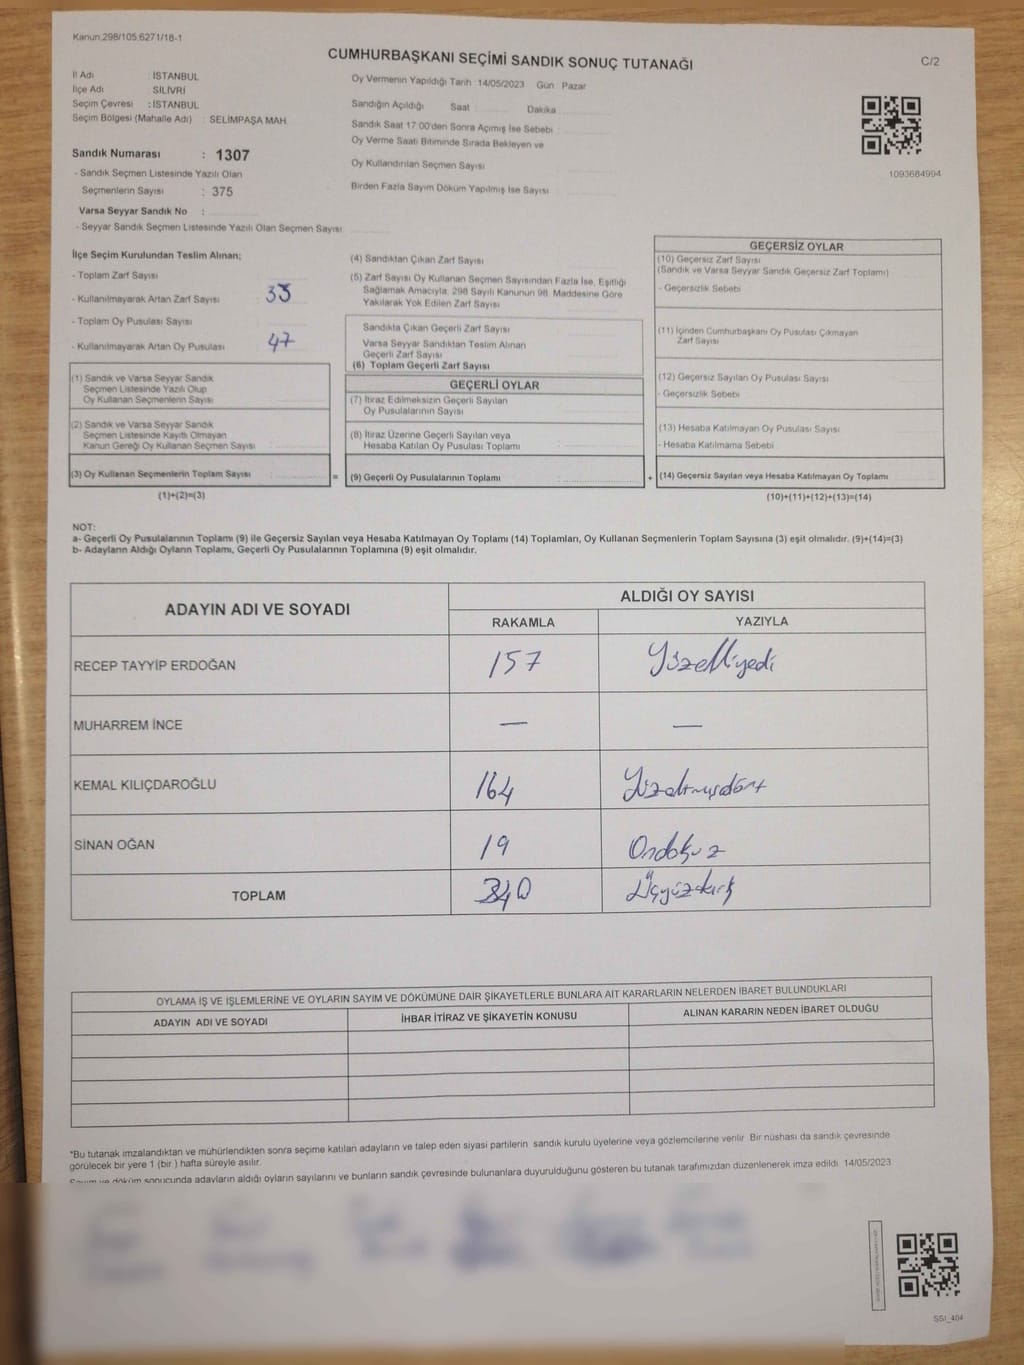 Kanun.298/105.6271/18-1
CUMHURBAŞKANI SEÇİMİ SANDIK SONUÇ TUTANAĞI
C/2
İl Adı : İSTANBUL
İlçe Adı : SİLİVRİ
Seçim Çevresi : İSTANBUL
Seçim Bölgesi (Mahalle Adı) : SELİMPAŞA MAH.
Sandık Numarası : 1307
- Sandık Seçmen Listesinde Yazılı Olan
Seçmenlerin Sayısı : 375
Varsa Seyyar Sandık No :
- Seyyar Sandık Seçmen Listesinde Yazılı Olan Seçmen Sayısı
Oy Vermenin Yapıldığı Tarih 14/05/2023 Gün : Pazar
Sandığın Açıldığı Saat Dakika
Sandık Saat 17:00'den Sonra Açımış İse Sebebi
Oy Verme Saati Bitiminde Sırada Bekleyen ve
Oy Kullandırılan Seçmen Sayısı
Birden Fazla Sayım Döküm Yapılmış İse Sayısı
1093684994
İlçe Seçim Kurulundan Teslim Alınan;
- Toplam Zarf Sayısı
- Kullanılmayarak Artan Zarf Sayısı : 33
- Toplam Oy Pusulası Sayısı :
- Kullanılmayarak Artan Oy Pusulası : 47
(1) Sandık ve Varsa Seyyar Sandık
Seçmen Listesinde Yazılı Olup
Oy Kullanan Seçmenlerin Sayısı
(2) Sandık ve Varsa Seyyar Sandık
Seçmen Listesinde Kayıtlı Olmayan
Kanun Gereği Oy Kullanan Seçmen Sayısı
(3) Oy Kullanan Seçmenlerin Toplam Sayısı :
(1)+(2)=(3)
(4) Sandıktan Çıkan Zarf Sayısı
(5) Zarf Sayısı Oy Kullanan Seçmen Sayısından Fazla İse, Eşitliği
Sağlamak Amacıyla, 298 Sayılı Kanunun 98. Maddesine Göre
Yakılarak Yok Edilen Zarf Sayısı
Sandıkta Çıkan Geçerli Zarf Sayısı
Varsa Seyyar Sandıktan Teslim Alınan
Geçerli Zarf Sayısı
(6) Toplam Geçerli Zarf Sayısı
GEÇERLİ OYLAR
(7) İtiraz Edilmeksizin Geçerli Sayılan
Oy Pusulalarının Sayısı
(8) İtiraz Üzerine Geçerli Sayılan veya
Hesaba Katılan Oy Pusulası Toplamı
= (9) Geçerli Oy Pusulalarının Toplamı
GEÇERSİZ OYLAR
(10) Geçersiz Zarf Sayısı
(Sandık ve Varsa Seyyar Sandık Geçersiz Zarf Toplamı)
- Geçersizlik Sebebi
(11) İçinden Cumhurbaşkanı Oy Pusulası Çıkmayan
Zarf Sayısı
(12) Geçersiz Sayılan Oy Pusulası Sayısı
- Geçersizlik Sebebi
(13) Hesaba Katılmayan Oy Pusulası Sayısı
- Hesaba Katılmama Sebebi
+ (14) Geçersiz Sayılan veya Hesaba Katılmayan Oy Toplamı
(10)+(11)+(12)+(13)=(14)
NOT:
a- Geçerli Oy Pusulalarının Toplamı (9) ile Geçersiz Sayılan veya Hesaba Katılmayan Oy Toplamı (14) Toplamları, Oy Kullanan Seçmenlerin Toplam Sayısına (3) eşit olmalıdır. (9)+(14)=(3)
b- Adayların Aldığı Oyların Toplamı, Geçerli Oy Pusulalarının Toplamına (9) eşit olmalıdır.
ADAYIN ADI VE SOYADI
ALDIĞI OY SAYISI
RAKAMLA YAZIYLA
RECEP TAYYİP ERDOĞAN 157 Yüzelliyedi
MUHARREM İNCE — —
KEMAL KILIÇDAROĞLU 164 Yüzaltmışdört
SİNAN OĞAN 19 Ondokuz
TOPLAM 340 Üçyüzkırk
OYLAMA İŞ VE İŞLEMLERİNE VE OYLARIN SAYIM VE DÖKÜMÜNE DAİR ŞİKAYETLERLE BUNLARA AİT KARARLARIN NELERDEN İBARET BULUNDUKLARI
ADAYIN ADI VE SOYADI İHBAR İTİRAZ VE ŞİKAYETİN KONUSU ALINAN KARARIN NEDEN İBARET OLDUĞU
*Bu tutanak imzalandıktan ve mühürlendikten sonra seçime katılan adayların ve talep eden siyasi partilerin sandık kurulu üyelerine veya gözlemcilerine verilir. Bir nüshası da sandık çevresinde
görülecek bir yere 1 (bir) hafta süreyle asılır.
Sayım ve döküm sonucunda adayların aldığı oyların sayılarını ve bunların sandık çevresinde bulunanlara duyurulduğunu gösteren bu tutanak tarafımızdan düzenlenerek imza edildi. 14/05/2023
SSI_404